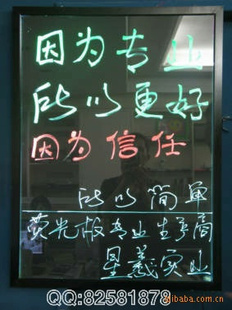 因为专业
所以更好
因为信任
所以简单
荧光板专业生产商
星羲实业
QQ:82581878
alibaba.com.cn